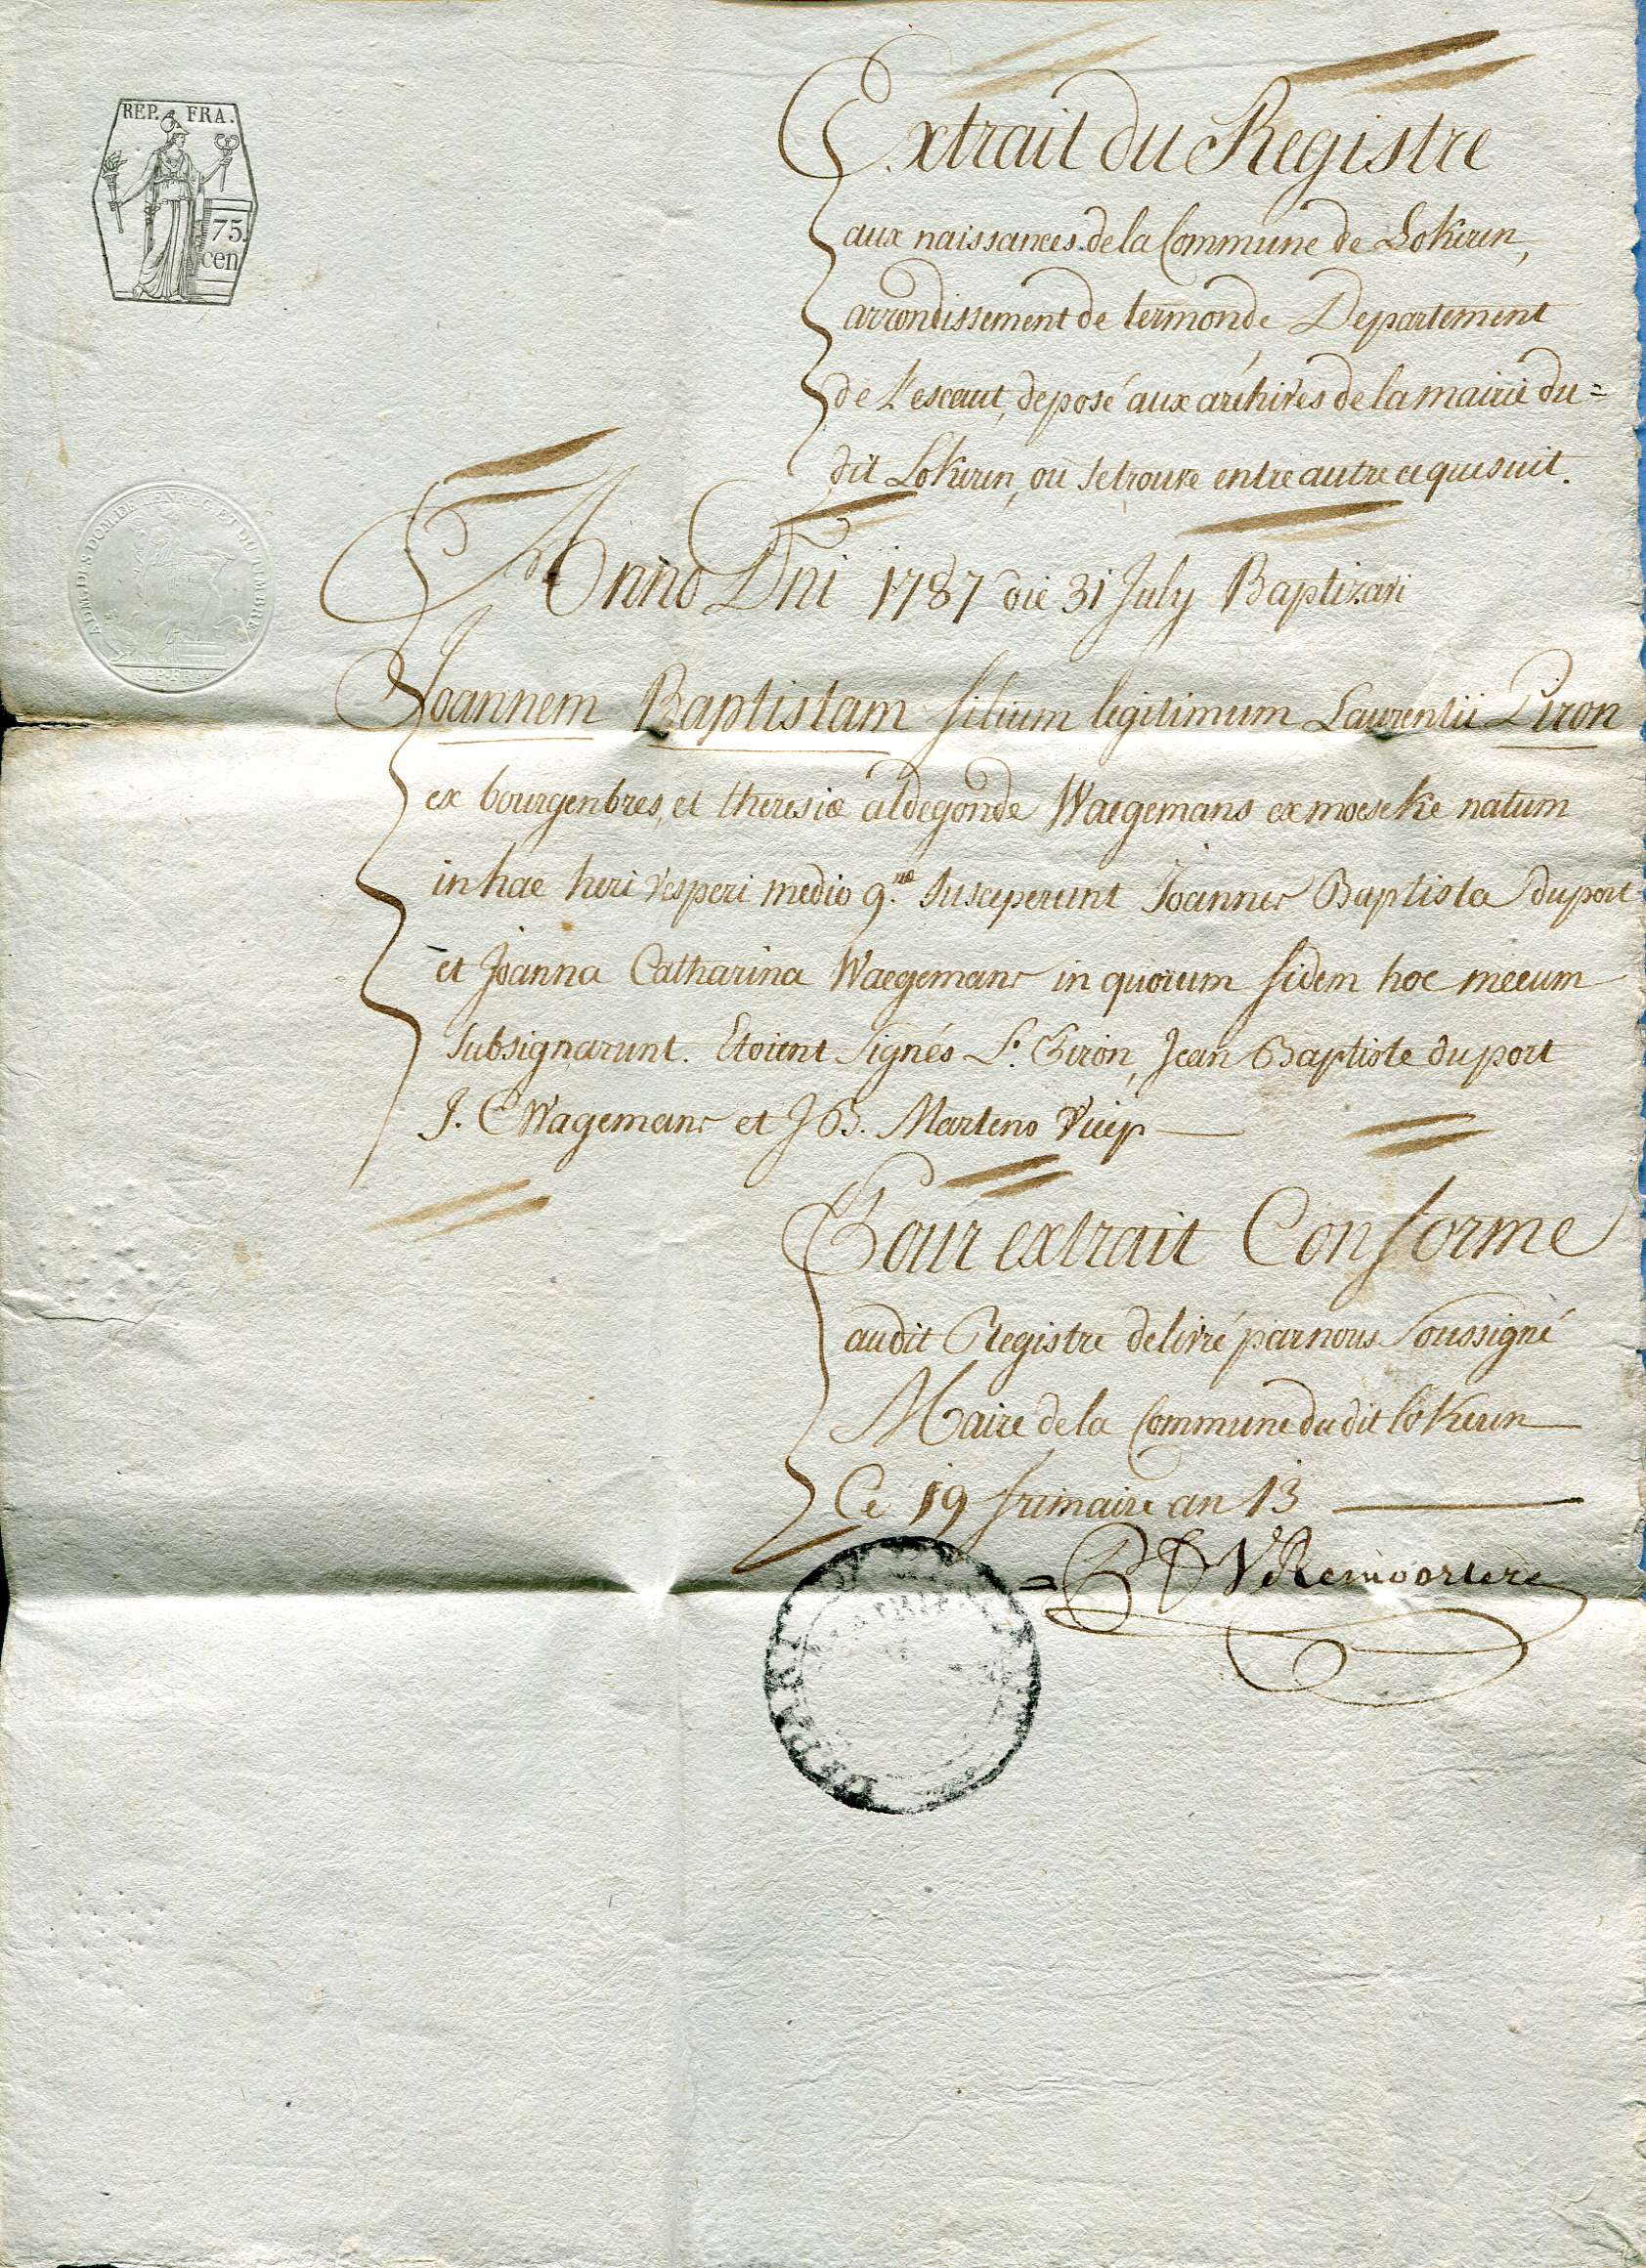 REP. FRA.
75.
cen
Extrait du Registre
aux naissances de la Commune de Lokeren,
arrondissement de termonde Departement
de L'escaut, deposé aux archives de la mairie du=
dit Lokeren, où se trouve entre autre ce qui suit.
ADM. DES DOM. DE L'ENREG. ET DU TIMBRE
REP. FRA.
Anno Dni 1787 die 31 July Baptizavi
Joannem Baptistam filium legitimum Laurentii Piron
ex bourgenbres, et theresiæ aldegonde Waegemans ex moeseke natum
in hac heri vesperi medio 9.næ Susceperunt Joannes Baptista duport
et Joanna Catharina Waegemans in quorum fidem hoc mecum
Subsignarunt. Etoient Signés L. Piron, Jean Baptiste duport
J. C Wagemans et J B. Martens Vicep
Pour extrait Conforme
audit Registre delivré par nous Soussigné
Maire de la Commune du dit lokeren
Ce 19 frimaire an 13
VRemoortere
DEPART